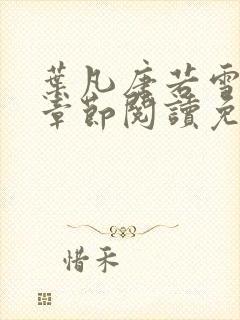 葉凡唐若雪
章節閱讀免
惜禾